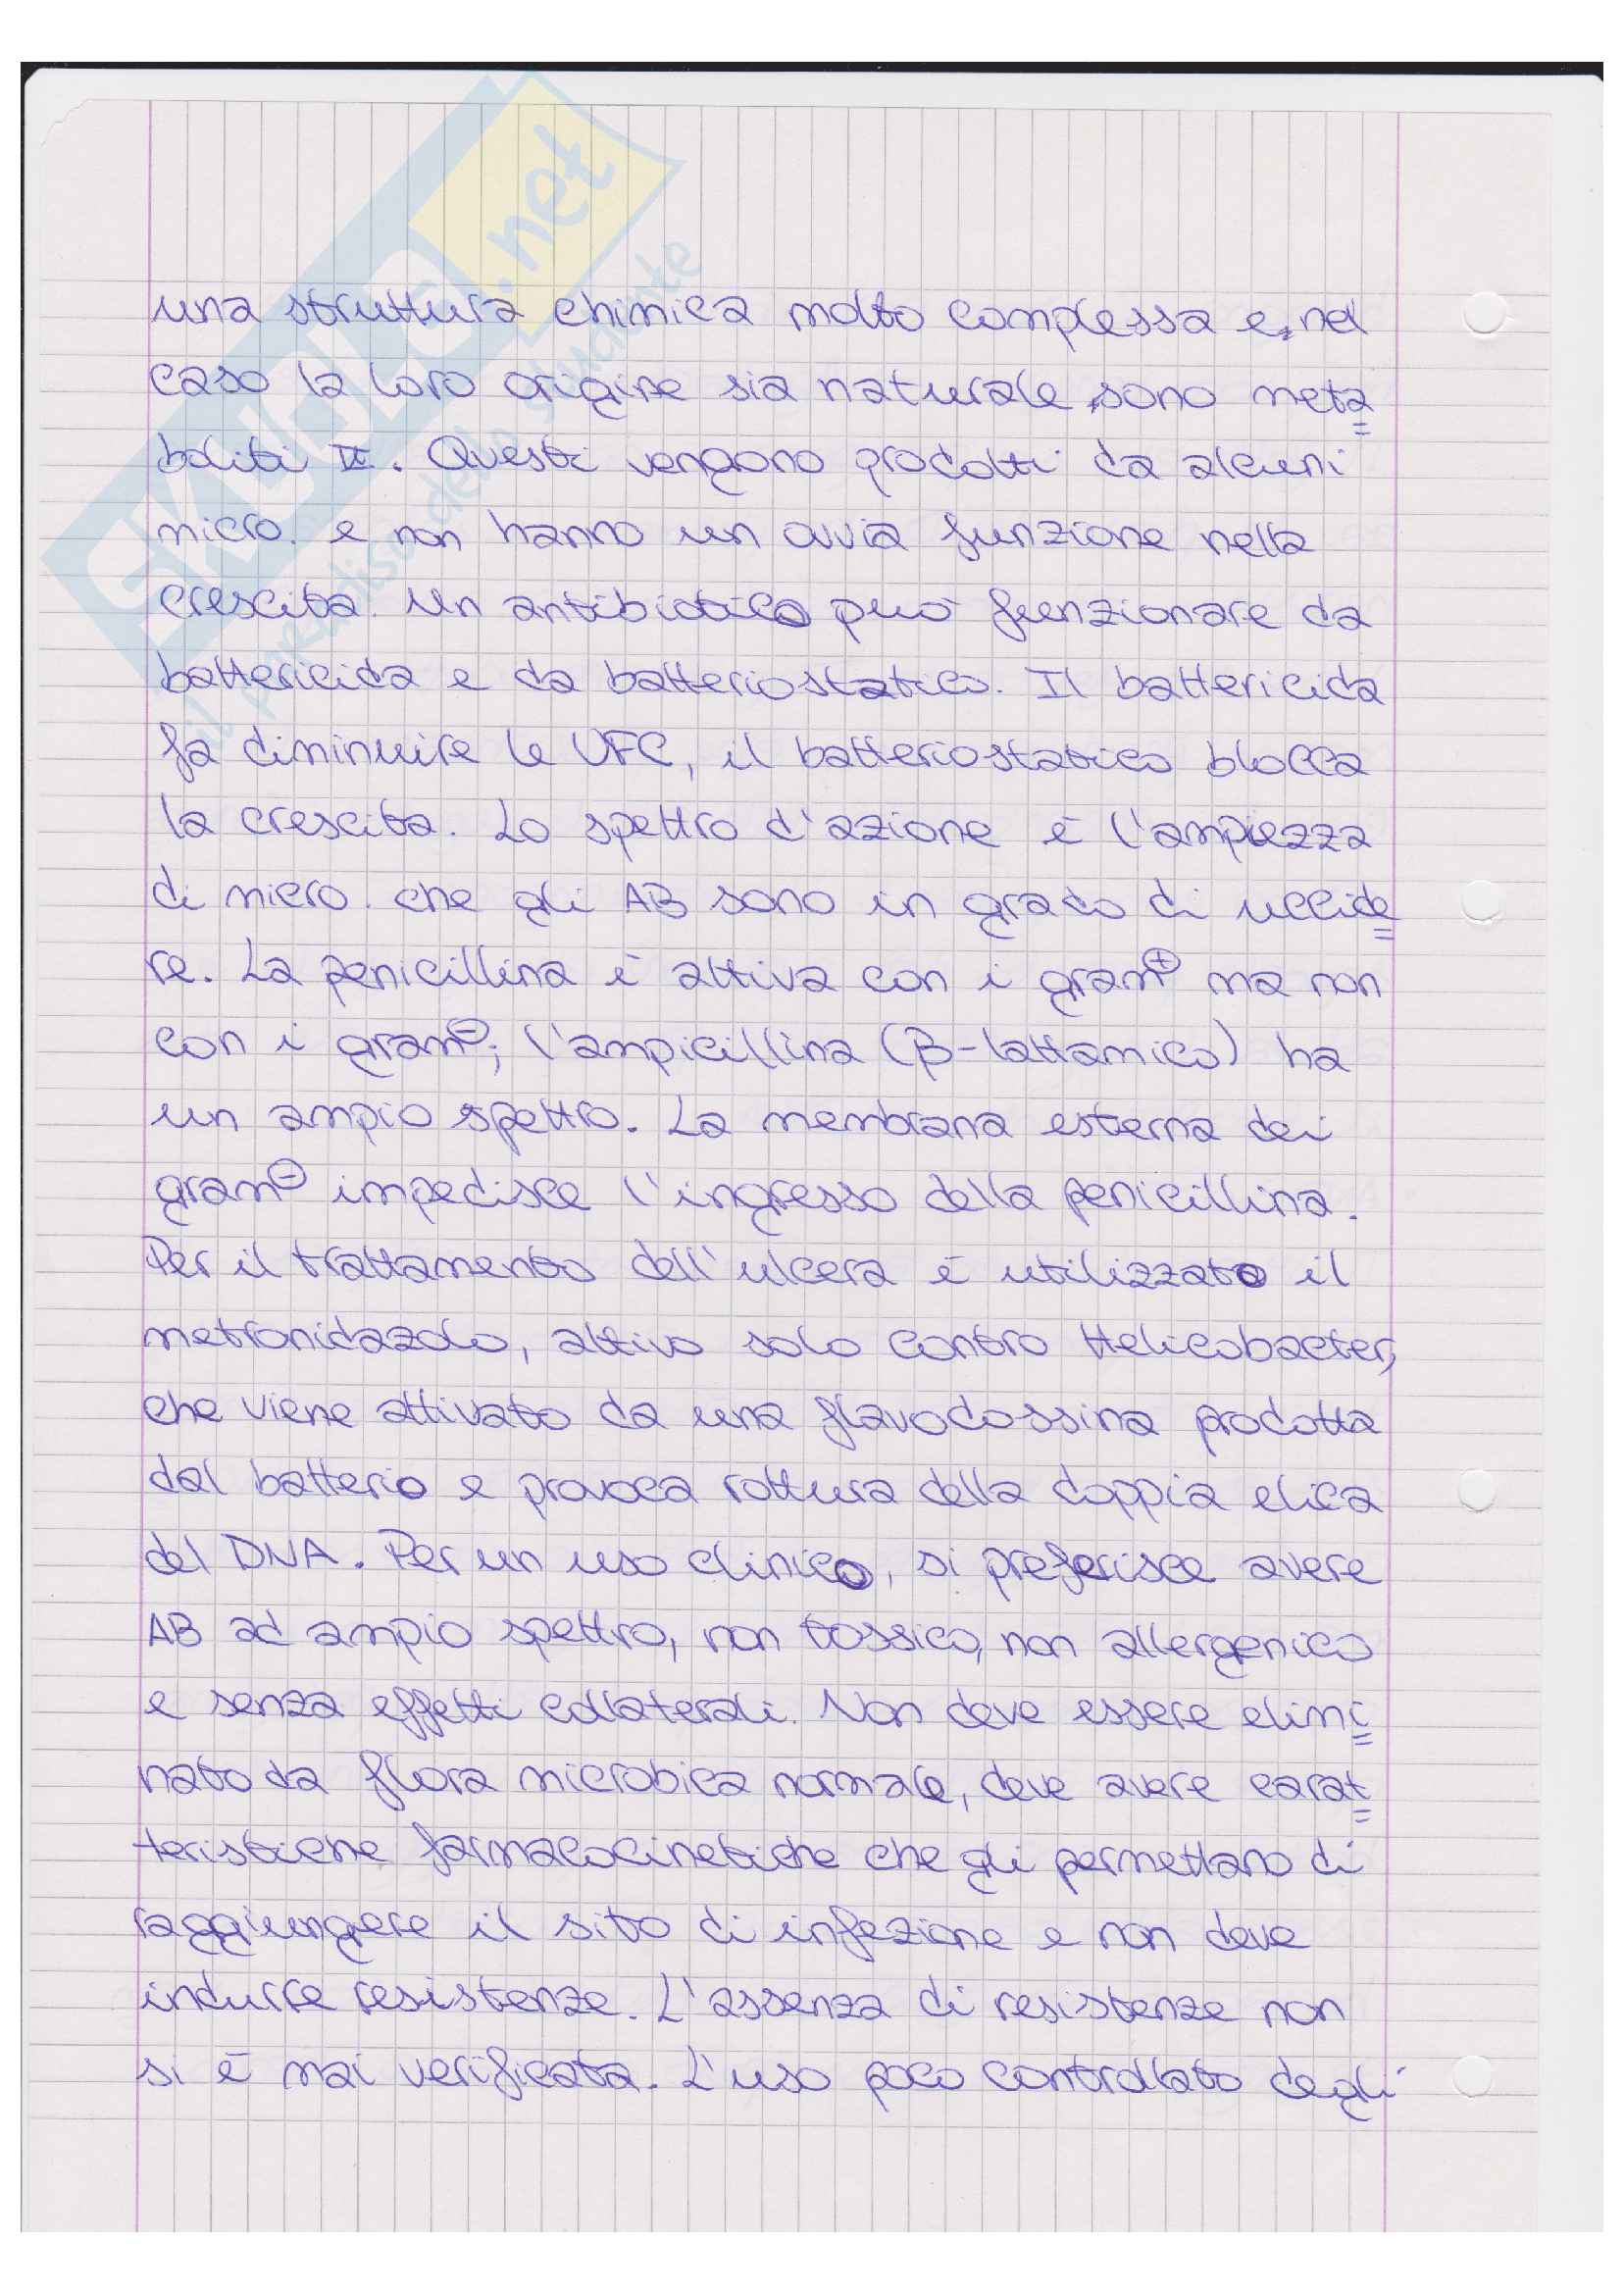 una struttura chimica molto complessa e, nel
caso la loro origine sia naturale, sono meta
boliti II. Questi vengono prodotti da alcuni
micro. e non hanno un ovvia funzione nella
crescita. Un antibiotico può funzionare da
battericida e da batteriostatico. Il battericida
fa diminuire le UFC, il batteriostatico blocca
la crescita. Lo spettro d'azione è l'ampiezza
di micro. che gli AB sono in grado di uccide
re. La penicillina è attiva con i gram⊕ ma non
con i gram⊖; l'ampicillina (β-lattamico) ha
un ampio spettro. La membrana esterna dei
gram⊖ impedisce l'ingresso della penicillina.
Per il trattamento dell'ulcera è utilizzato il
metronidazolo, attivo solo contro Helicobacter,
che viene attivato da una flavodossina prodotta
dal batterio e provoca rottura della doppia elica
del DNA. Per un uso clinico, si preferisce avere
AB ad ampio spettro, non tossico, non allergenico
e senza effetti collaterali. Non deve essere elimi
nato da flora microbica normale, deve avere carat
teristiche farmacocinetiche che gli permettano di
raggiungere il sito di infezione e non deve
indurre resistenze. L'assenza di resistenze non
si è mai verificata. L'uso poco controllato degli
SKUOLA.net
il paradiso dello studente